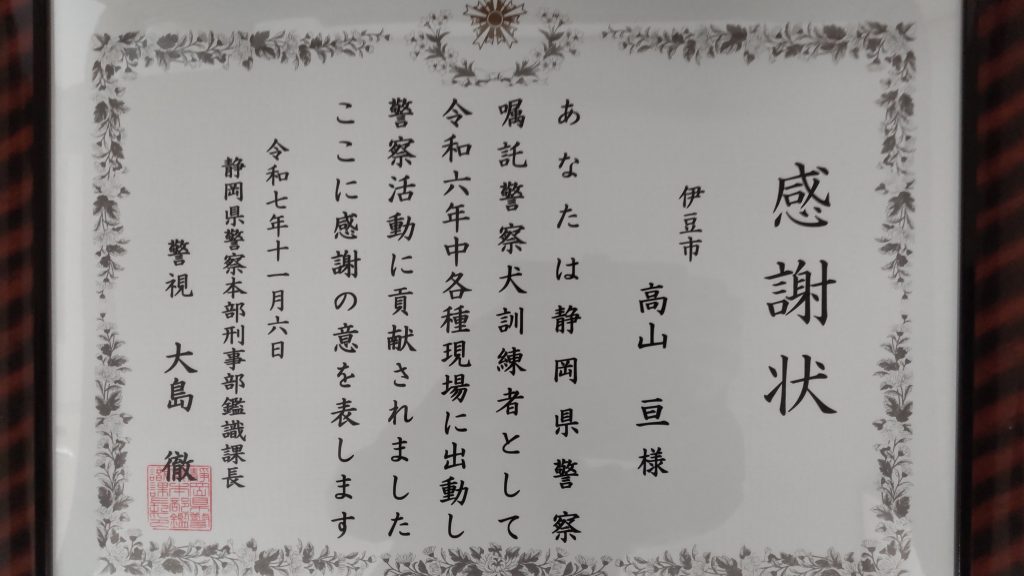 感謝状
伊豆市
高山 亘様
あなたは静岡県警察
嘱託警察犬訓練者として
令和六年中各種現場に出動し
警察活動に貢献されました
ここに感謝の意を表します
令和七年十一月六日
静岡県警察本部刑事部鑑識課長
警視 大島 徹